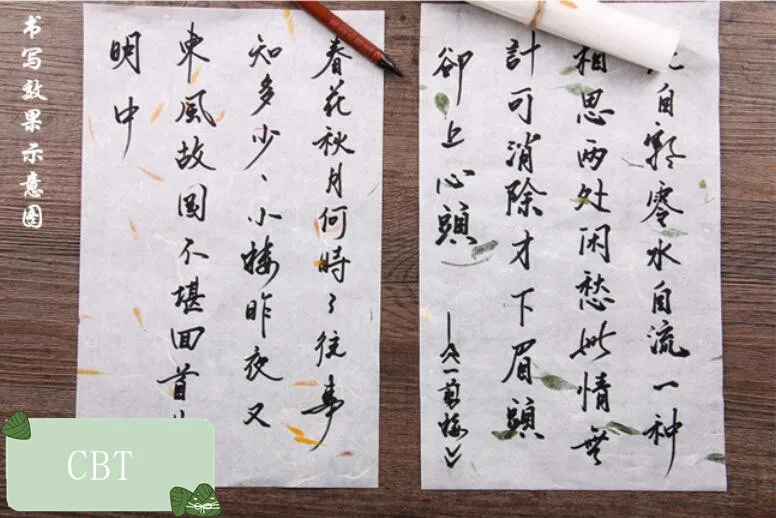 书写效果示意图
自飘零水自流一种
相思两处闲愁此情無
計可消除才下眉頭
卻上心頭
一剪梅
春花秋月何時了往事
知多少、小楼昨夜又
東風故国不堪回首
明中
CBT